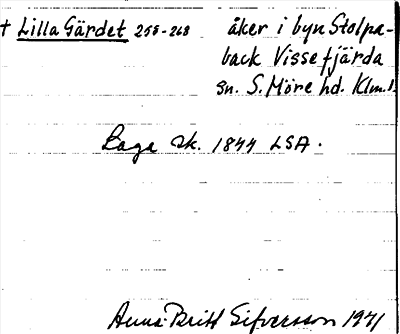 † Lilla Gärdet 255-268 åker i byn Stolpa-
back Vissefjärda
sn. S. Möre hd. Klm.l.
Laga sk. 1844 LSA.
Anna-Britt Sifversson 1971